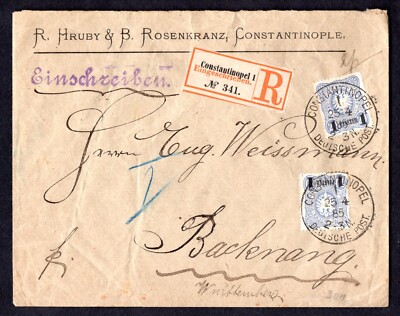 R. HRUBY & B. ROSENKRANZ, CONSTANTINOPLE.
Einschreiben.
Constantinopel 1
Eingeschrieben.
№ 341.
R
CONSTANTINOPEL
1
25 4
2-3N.
DEUTSCHE POST.
1 PIASTER 1
Herrn Eug. Weissmann
CONSTANTINOPEL
1
25 4
85
2-3N.
DEUTSCHE POST.
1 PIASTER 1
Backnang.
Württemberg